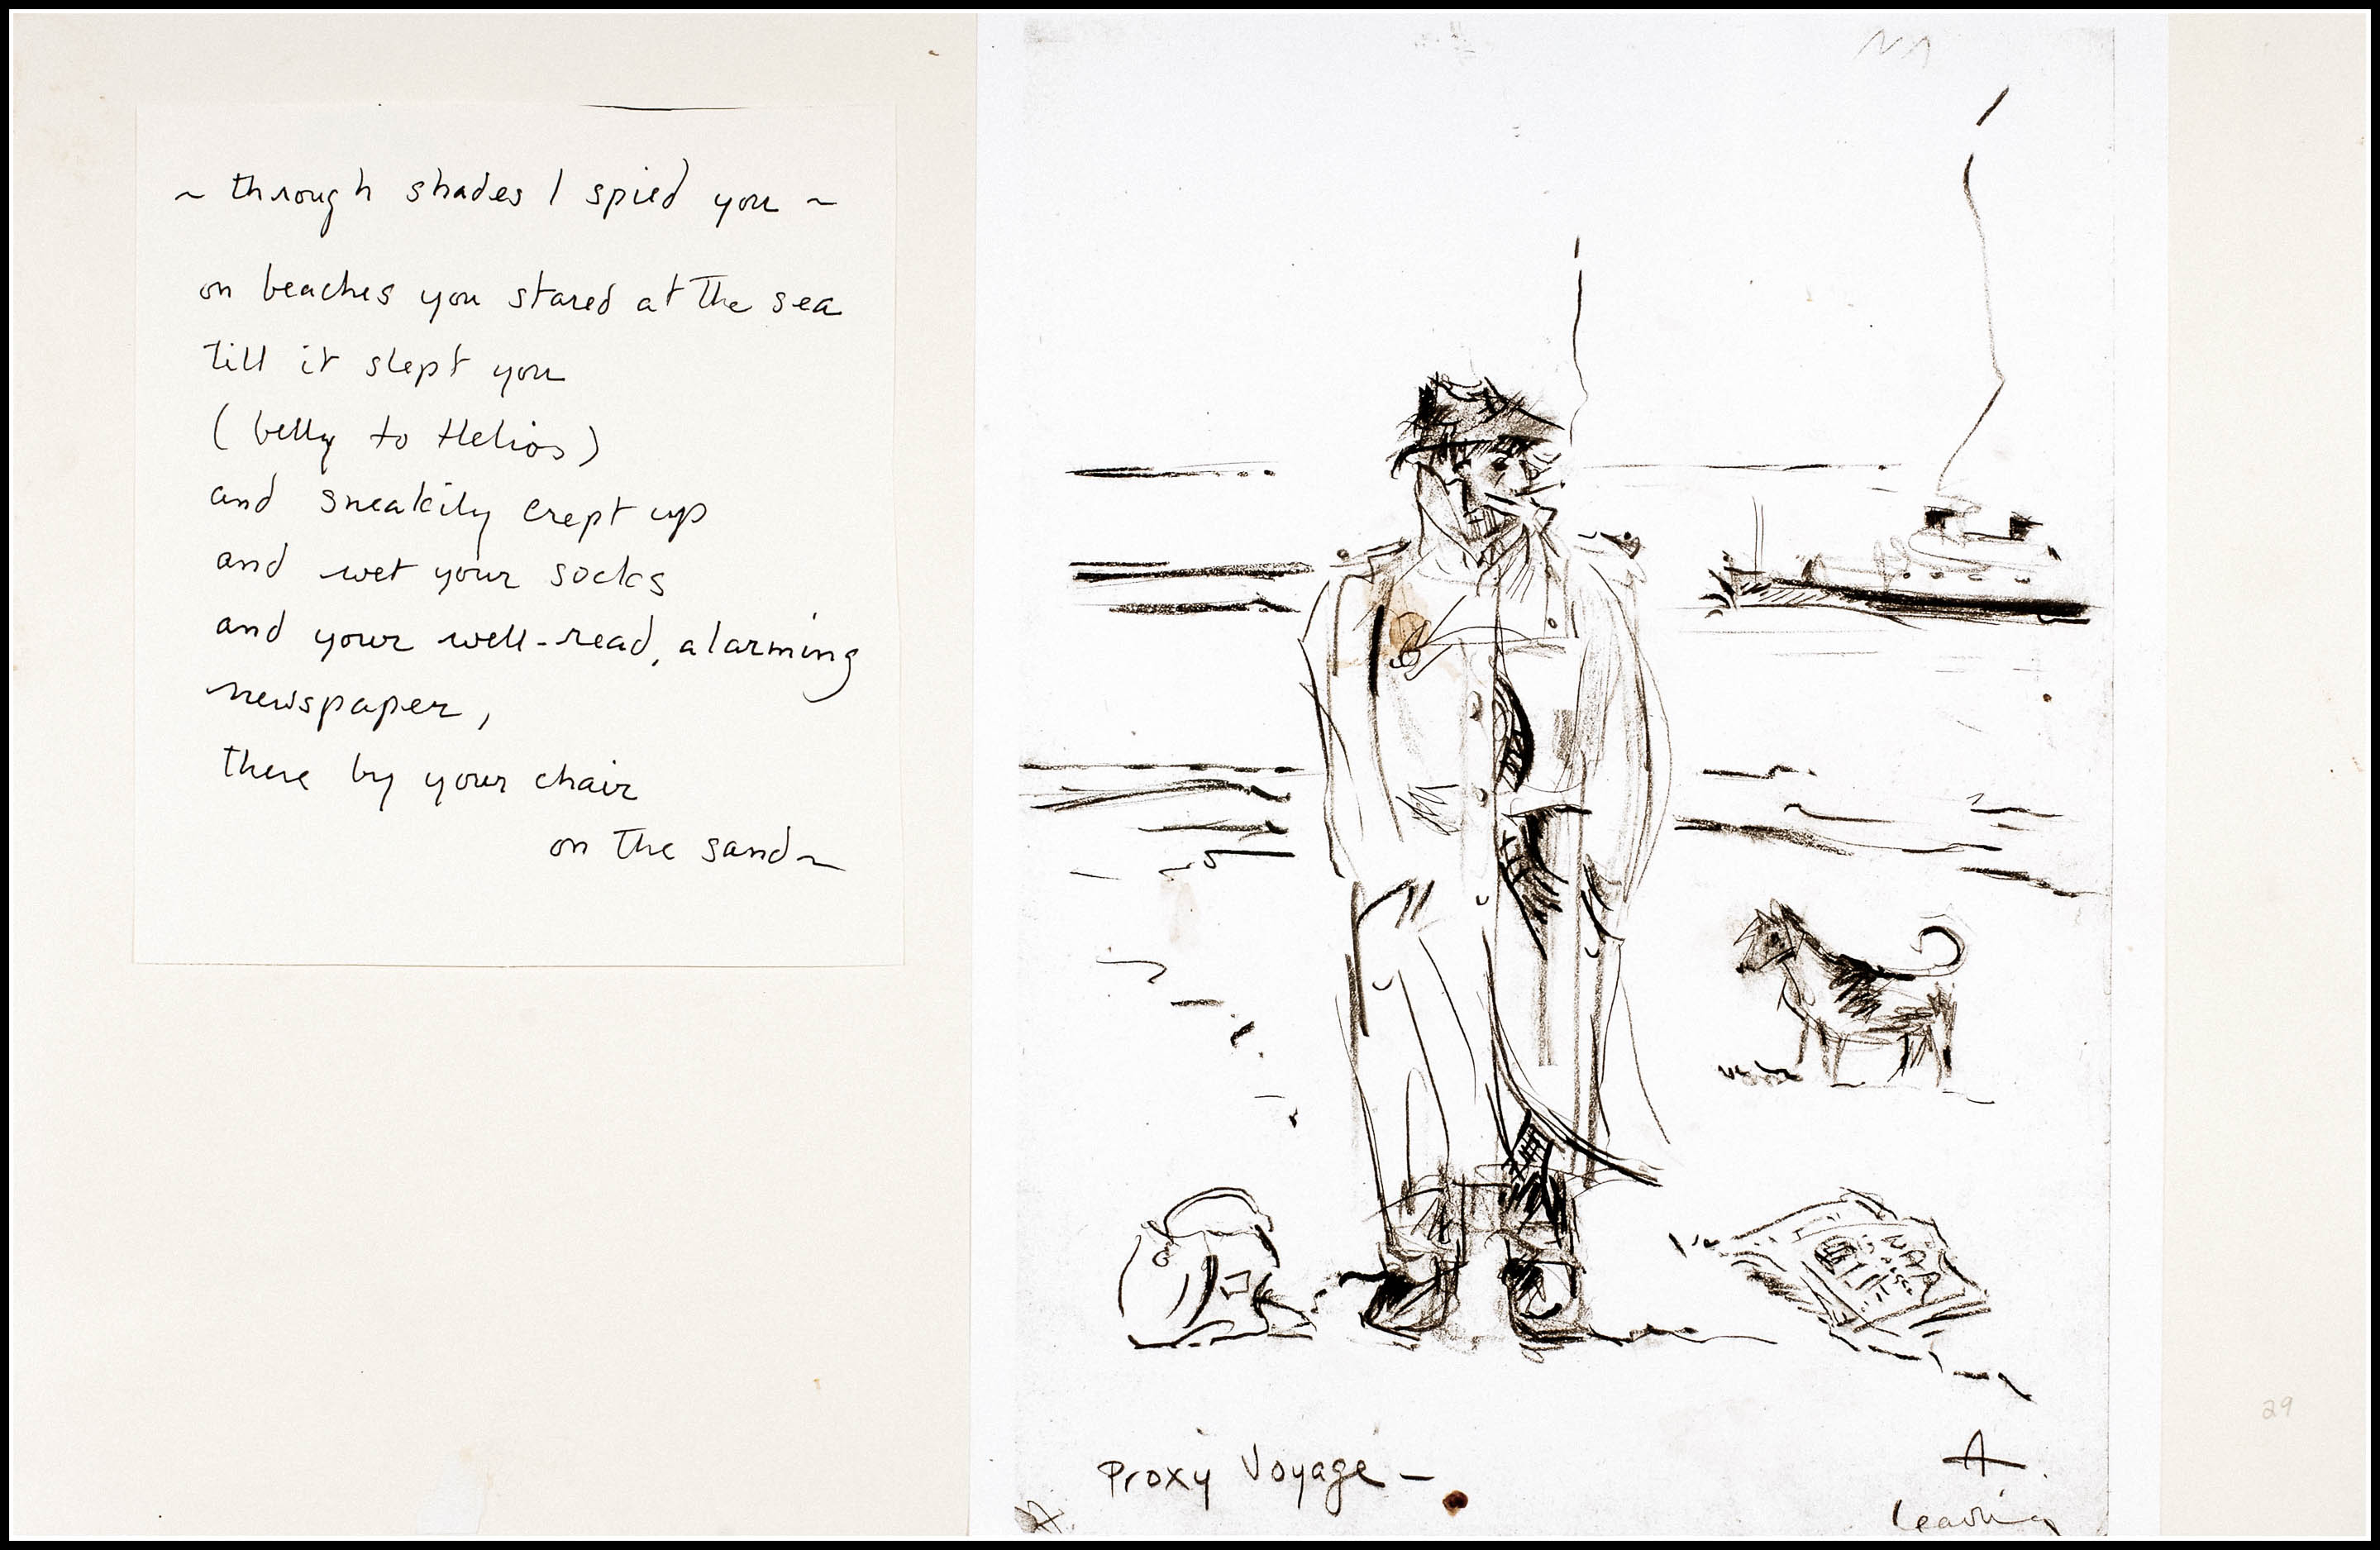 ~ through shades I spied you ~
on beaches you stared at the sea
till it slept you
(belly to Helios)
and sneakily crept up
and wet your socks
and your well-read, alarming
newspaper,
there by your chair
on the sand ~
Proxy Voyage –
A.
leaving
29